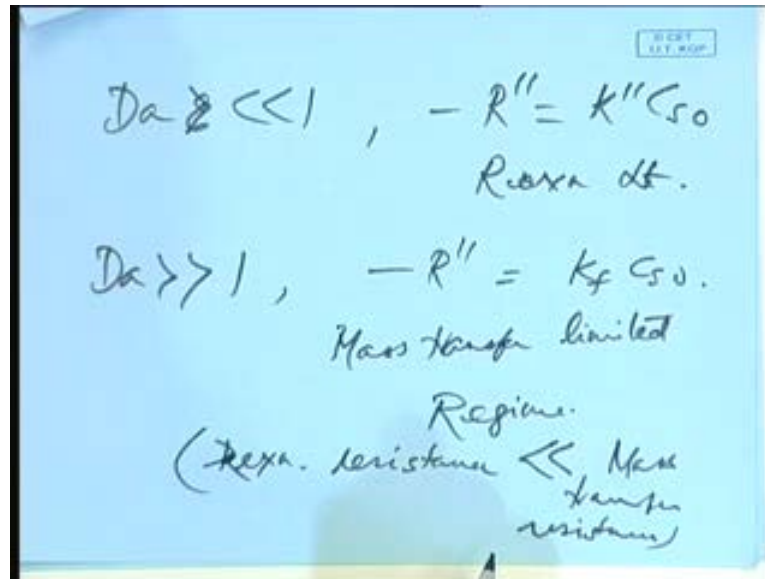 © CET
I.I.T. KGP
Da << 1 , - R'' = K'' Cso
Rexn lt.
Da >> 1 , - R'' = Kf Cso.
Mass transfer limited
Regime.
(Rexn. resistance << Mass
transfer
resistance)